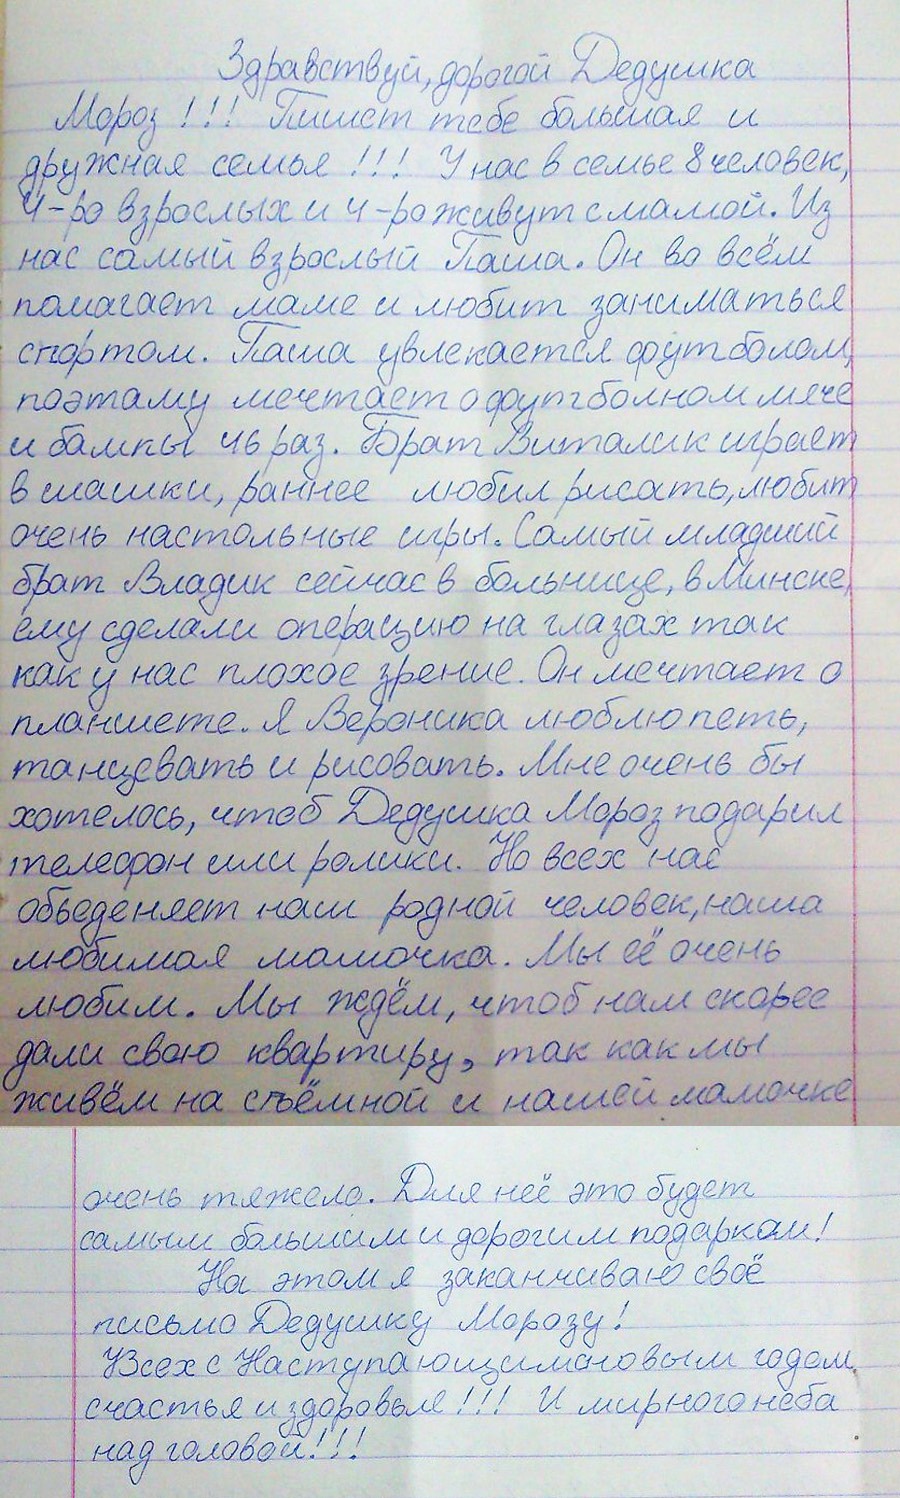 Здравствуй, дорогой Дедушка
Мороз!!! Пишет тебе большая и
дружная семья!!! У нас в семье 8 человек,
4-ро взрослых и 4-ро живут с мамой. Из
нас самый взрослый Паша. Он во всём
помагает маме и любит заниматься
спортом. Паша увлекается футболом,
поэтаму мечтает о футболном мяче
и бампы 46 раз. Брат Виталик играет
в шашки, раннее любил рисать, любит
очень настольные игры. Самый младший
брат Владик сейчас в больнице, в Минске,
ему сделали операцию на глазах так
как у нас плохое зрение. Он мечтает о
планшете. Я Вероника люблю петь,
танцевать и рисовать. Мне очень бы
хотелось, чтоб Дедушка Мороз подарил
телефон или ролики. Но всех нас
обьеденяет наш родной человек, наша
любимая мамочка. Мы её очень
любим. Мы ждём, чтоб нам скорее
дали свою квартиру, так как мы
живём на съёмной и нашей мамочке
очень тяжело. Для неё это будет
самым большим и дорогим подарком!
На этом я заканчиваю своё
письмо Дедушку Морозу!
Всех с Наступающим новым годом
счастья и здоровье!!! И мирного неба
над головой!!!